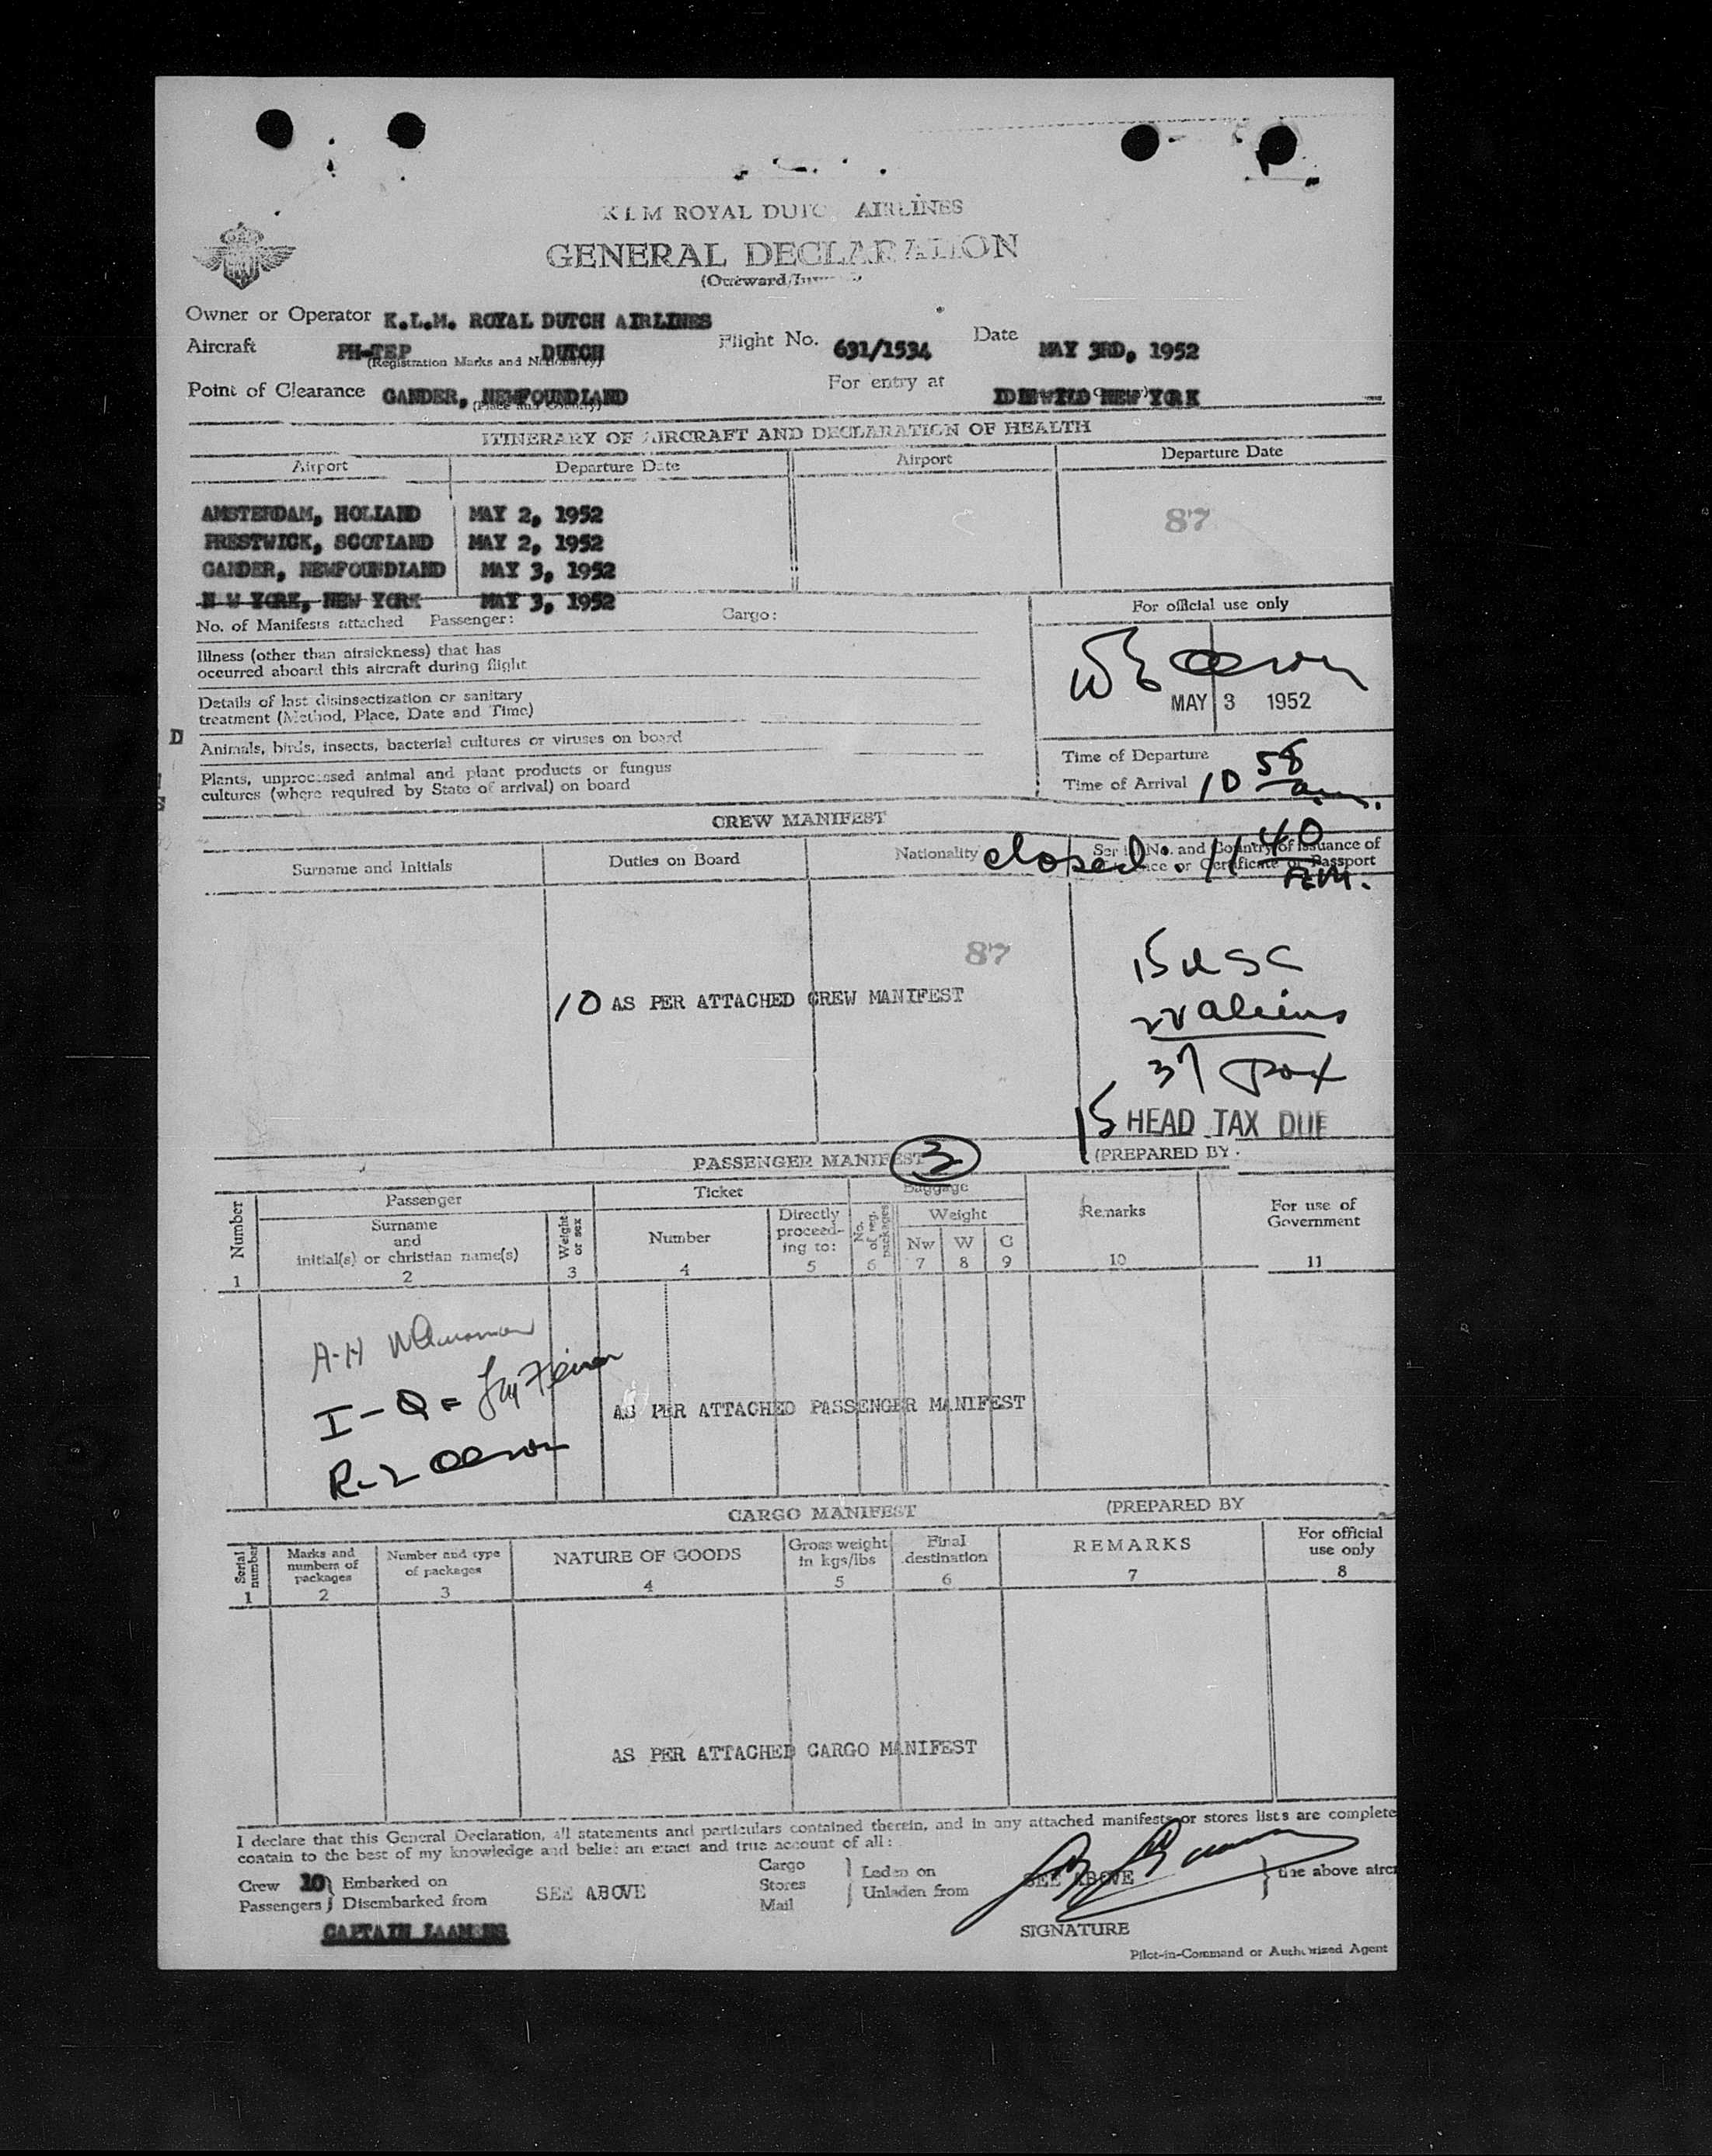 KLM ROYAL DUTC AIRLINES
GENERAL DECLARATION
Owner or Operator K.L.M. ROYAL DUTCH AIRLINES
Aircraft PH-TEP DUTCH Flight No. 631/1534 Date MAY 3RD, 1952
(Registration Marks and Nationality)
Point of Clearance GANDER, NEWFOUNDLAND For entry at IDLEWILD NEW YORK
(Place and Country)
ITINERARY OF AIRCRAFT AND DECLARATION OF HEALTH
Airport Departure Date Airport Departure Date
AMSTERDAM, HOLLAND MAY 2, 1952 87
PRESTWICK, SCOTLAND MAY 2, 1952
GANDER, NEWFOUNDLAND MAY 3, 1952
N W YORK, NEW YORK MAY 3, 1952
No. of Manifests attached Passenger: Cargo:
For official use only
Illness (other than airsickness) that has
occurred aboard this aircraft during flight
Details of last disinsectization or sanitary
treatment (Method, Place, Date and Time)
MAY 3 1952
D
Animals, birds, insects, bacterial cultures or viruses on board
Plants, unprocessed animal and plant products or fungus
cultures (where required by State of arrival) on board
Time of Departure
Time of Arrival 10 58 a.m.
CREW MANIFEST
Surname and Initials Duties on Board Nationality Serial No. and Country of Issuance of
Licence or Certificate or Passport
closed. 11 40 A.M.
87
10 AS PER ATTACHED CREW MANIFEST
15 USC
22 aliens
37 pax
15 HEAD TAX DUE
PASSENGER MANIFEST 3 (PREPARED BY
Number Passenger Ticket Baggage Remarks For use of
Government
Surname
and
initial(s) or christian name(s)
Weight or sex
Number
Directly
proceed-
ing to:
No. of reg. packages
Weight
Nw W C
1 2 3 4 5 6 7 8 9 10 11
A-H
I-Q =
R-Z Olson
AS PER ATTACHED PASSENGER MANIFEST
CARGO MANIFEST (PREPARED BY
Serial number
Marks and
numbers of
packages
Number and type
of packages
NATURE OF GOODS
Gross weight
in kgs/lbs
Final
destination
REMARKS
For official
use only
1 2 3 4 5 6 7 8
AS PER ATTACHED CARGO MANIFEST
I declare that this General Declaration, all statements and particulars contained therein, and in any attached manifests or stores lists are complete
contain to the best of my knowledge and belief an exact and true account of all:
Crew 10 Embarked on
Passengers Disembarked from SEE ABOVE
Cargo
Stores
Mail
Laden on
Unladen from SEE ABOVE the above aircr
CAPTAIN
SIGNATURE
Pilot-in-Command or Authorized Agent